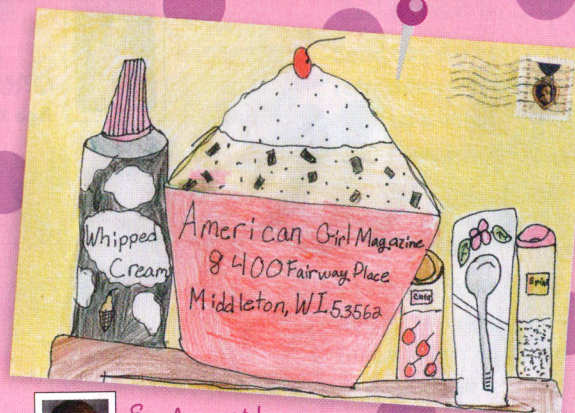 Whipped
Cream
American Girl Magazine
8400 Fairway Place
Middleton, WI 53562